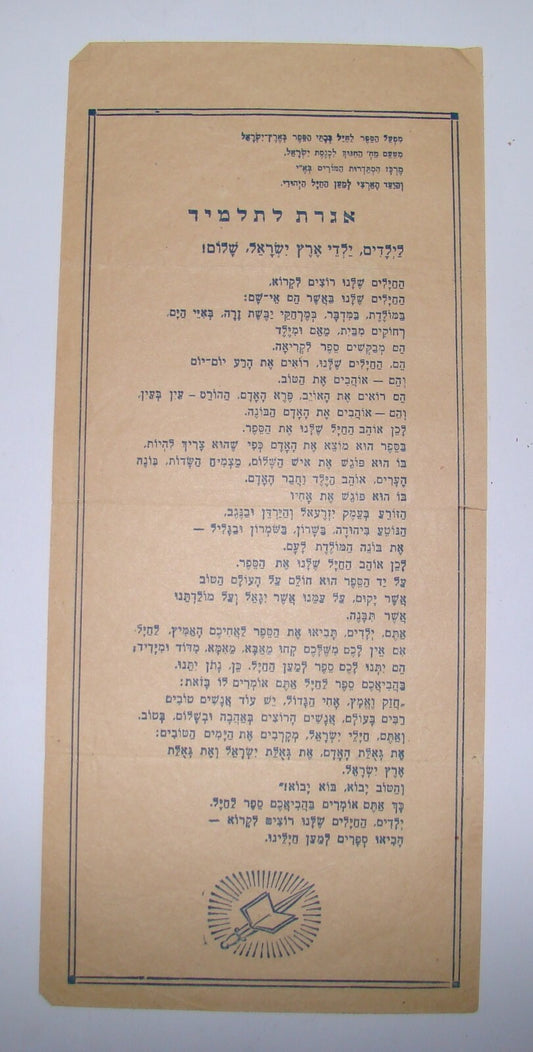 מִפְעַל הַסֵּפֶר לַחַיָּל בְּבָתֵּי הַסֵּפֶר בְּאֶרֶץ־יִשְׂרָאֵל
מִטַּעַם מַח׳ הַחִנּוּךְ לִכְנֶסֶת יִשְׂרָאֵל,
מֶרְכַּז הִסְתַּדְּרוּת הַמּוֹרִים בְּאֶ״י
וְהַוַּעַד הָאַרְצִי לְמַעַן הַחַיָּל הַיְּהוּדִי.
אגרת לתלמיד
לַיְלָדִים, יַלְדֵי אֶרֶץ יִשְׂרָאֵל, שָׁלוֹם!
הַחַיָּלִים שֶׁלָּנוּ רוֹצִים לִקְרוֹא,
הַחַיָּלִים שֶׁלָּנוּ בַּאֲשֶׁר הֵם אֵי־שָׁם:
בַּמּוֹלֶדֶת, בַּמִּדְבָּר, בְּמֶרְחַקֵּי יַבֶּשֶׁת זָרָה, בְּאִיֵּי הַיָּם,
רְחוֹקִים מִבַּיִת, מֵאֵם וּמִיֶּלֶד
הֵם מְבַקְּשִׁים סֵפֶר לִקְרִיאָה.
הֵם, הַחַיָּלִים שֶׁלָּנוּ, רוֹאִים אֶת הָרַע יוֹם־יוֹם
וְהֵם — אוֹהֲבִים אֶת הַטּוֹב.
הֵם רוֹאִים אֶת הָאוֹיֵב, פֶּרֶא הָאָדָם, הַהוֹרֵס – עַיִן בְּעַיִן,
וְהֵם — אוֹהֲבִים אֶת הָאָדָם הַבּוֹנֶה.
לָכֵן אוֹהֵב הַחַיָּל שֶׁלָּנוּ אֶת הַסֵּפֶר.
בַּסֵּפֶר הוּא מוֹצֵא אֶת הָאָדָם כְּפִי שֶׁהוּא צָרִיךְ לִהְיוֹת,
בּוֹ הוּא פּוֹגֵשׁ אֶת אִישׁ הַשָּׁלוֹם, מַצְמִיחַ הַשָּׂדוֹת, בּוֹנֶה
הֶעָרִים, אוֹהֵב הַיֶּלֶד וַחֲבֵר הָאָדָם.
בּוֹ הוּא פּוֹגֵשׁ אֶת אָחִיו
הַזּוֹרֵעַ בְּעֵמֶק יִזְרְעֶאל וְהַיַּרְדֵּן וּבַנֶּגֶב,
הַנּוֹטֵעַ בִּיהוּדָה, בַּשָּׁרוֹן, בַּשּׁוֹמְרוֹן וּבַגָּלִיל —
אֶת בּוֹנֶה הַמּוֹלֶדֶת לָעָם.
לָכֵן אוֹהֵב הַחַיָּל שֶׁלָּנוּ אֶת הַסֵּפֶר.
עַל יַד הַסֵּפֶר הוּא חוֹלֵם עַל הָעוֹלָם הַטּוֹב
אֲשֶׁר יָקוּם, עַל עַמֵּנוּ אֲשֶׁר יִגָּאֵל וְעַל מוֹלַדְתֵּנוּ
אֲשֶׁר תִּבָּנֶה.
אַתֶּם, יְלָדִים, תָּבִיאוּ אֶת הַסֵּפֶר לַאֲחִיכֶם הָאַמִּיץ, לַחַיָּל.
אִם אֵין לָכֶם מִשֶּׁלָּכֶם קְחוּ מֵאַבָּא, מֵאִמָּא, מִדּוֹד וּמִיָּדִיד;
הֵם יִתְּנוּ לָכֶם סֵפֶר לְמַעַן הַחַיָּל. כֵּן, נָתֹן יִתְּנוּ.
בַּהֲבִיאֲכֶם סֵפֶר לַחַיָּל אַתֶּם אוֹמְרִים לוֹ בָּזֹאת:
„חֲזַק וֶאֱמָץ, אָחִי הַגָּדוֹל, יֵשׁ עוֹד אֲנָשִׁים טוֹבִים
רַבִּים בָּעוֹלָם, אֲנָשִׁים הָרוֹצִים בְּאַהֲבָה וּבְשָׁלוֹם, בְּטוֹב.
וְאַתֶּם, חַיָּלֵי יִשְׂרָאֵל, מְקָרְבִים אֶת הַיָּמִים הַטּוֹבִים:
אֶת גְּאֻלַּת הָאָדָם, אֶת גְּאֻלַּת יִשְׂרָאֵל וְאֶת גְּאֻלַּת
אֶרֶץ יִשְׂרָאֵל.
וְהַטּוֹב יָבוֹא, בּוֹא יָבוֹא!״
כָּךְ אַתֶּם אוֹמְרִים בַּהֲבִיאֲכֶם סֵפֶר לַחַיָּל.
יְלָדִים, הַחַיָּלִים שֶׁלָּנוּ רוֹצִים לִקְרוֹא —
הָבִיאוּ סְפָרִים לְמַעַן חַיָּלֵינוּ.